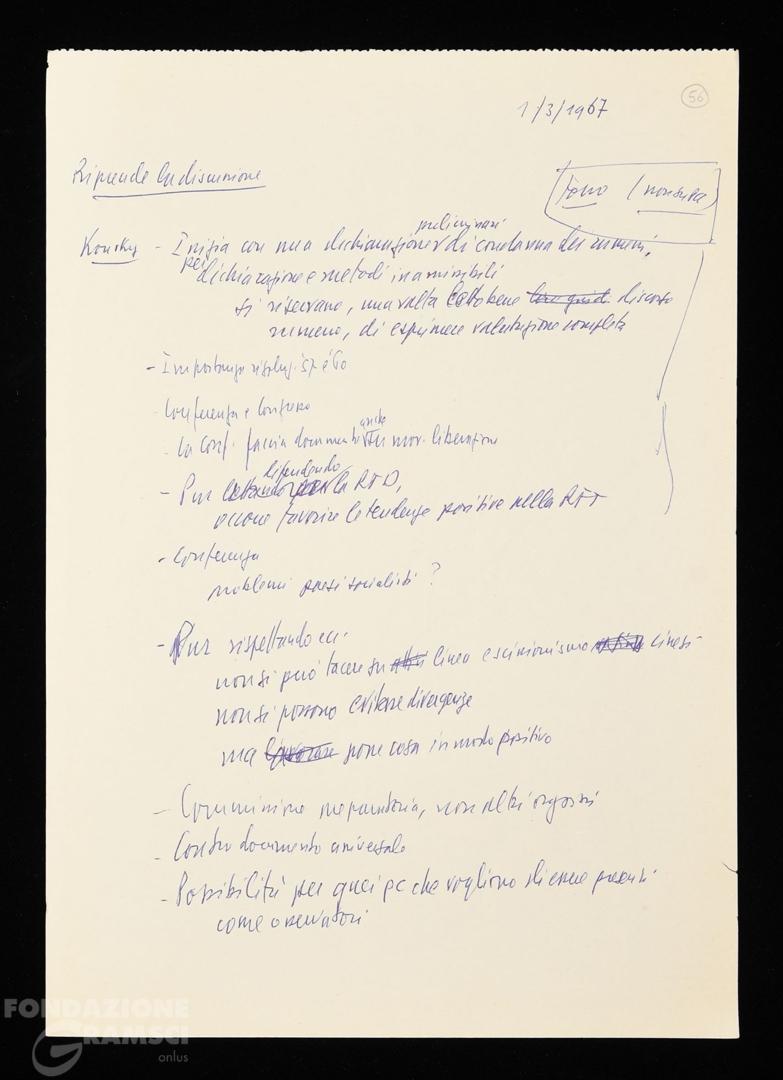 56
1/3/1967
Riprende la discussione
tono (
Konsky - Inizia con una dichiarazione preliminari di condanna dei rumeni,
per dichiarazione e metodi inammissibili
si riservano, una volta discorso
rumeno, di esprimere valutazione completa
- Importanza
- Conferenza e Congresso
- La Conf. faccia documento anche su mov. liberazione
- Pur difendendo la RTD,
occorre favorire le tendenze positive nella RFT
- Conferenza
problemi paesi socialisti?
- Pur rispettando ecc.
non si può tacere su linea escissionismo cinesi
non si possono evitare divergenze
ma pone cosa in modo positivo
- Commissione preparatoria, non altri organi
- Contro documento universale
- Possibilità per quei pc che vogliono di essere presenti
come osservatori
FONDAZIONE
GRAMSCI
onlus